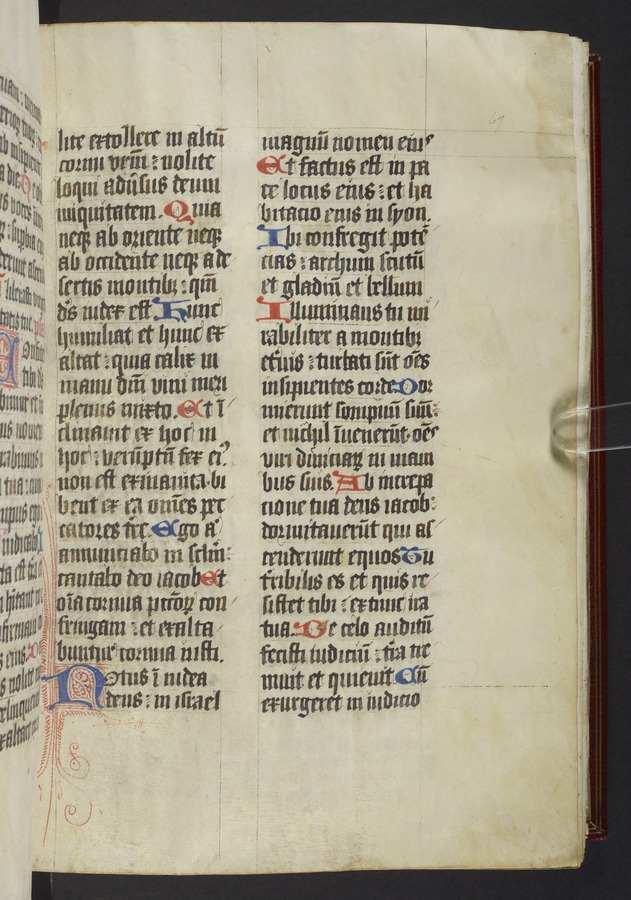 lite extollere in altū
cornu vr̄m : nolite
loqui adūsus deum
iniquitatem. Quia
neqꝫ ab oriente neqꝫ
ab occidente neqꝫ a de
sertis montibꝫ : qm̄
ds̄ iudex est Hunc
humiliat et hunc ex
altat : quia calix in
manu dn̄i vini meri
plenus mixto. Et ī
clinauit ex hoc in
hoc : verūptn̄ fex eiꝰ
non est exinanita. bi
bent ex ea omnes pec
catores tr̄e. Ego aū
annunciabo in sclm̄ :
cantabo deo iacob Et
oīa cornua pctōꝝ con
fringam : et exalta
buntur cornua iusti.
Notus ī iudea
deus : in israel
magnū nomen eiuꝰ
Et factus est in pa
ce locus eius : et ha
bitacio eius in syon.
Ibi confregit potē
cias : archum scutū
et gladiū et bellum
Illuminans tu mi
rabiliter a montibꝫ
et̄nis : turbati sūt oēs
insipientes corde Dor
mierunt sompnū suū :
et nichil īuenerūt oēs
viri diuiciaꝝ in mani
bus suis. Ab increpa
cione tua deus iacob :
dormitauerūt qui as
cenderunt equos Tu
t̄ribilis es et quis re
sistet tibi : extunc ira
tua. De celo auditū
fecisti iudiciū : tr̄a tre
muit et quieuit. Cū
exurgeret in iudicio